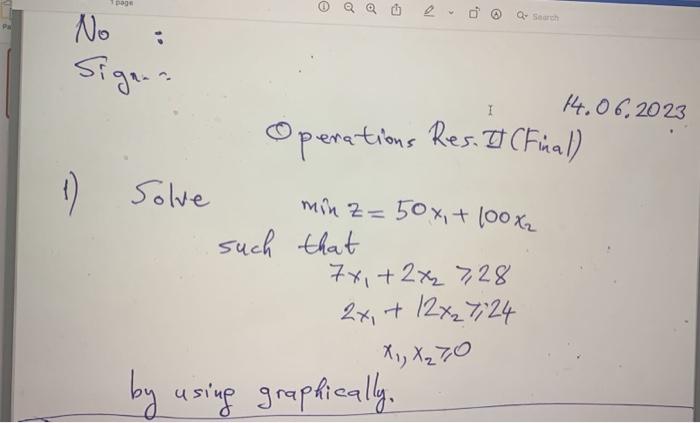 1 page
Search
No :
Sign. :
14.06.2023
Operations Res. II (Final)
1) Solve min z = 50x₁ + 100x₂
such that
7x₁ + 2x₂ ≥ 28
2x₁ + 12x₂ ≥ 24
x₁, x₂ ≥ 0
by using graphically.